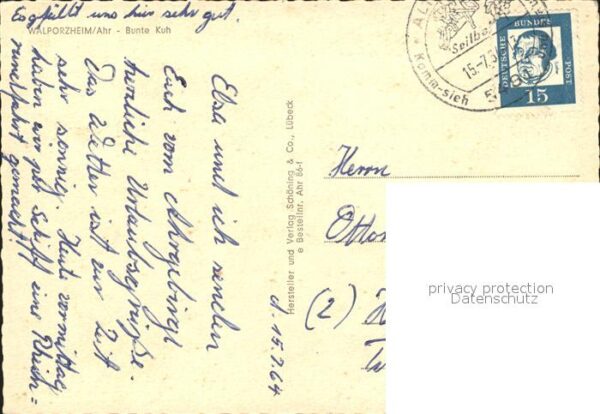 Es gefällt uns hier sehr gut.
WALPORZHEIM/Ahr - Bunte Kuh
d. 15.7.64
Elsa und ich senden
Euch vom Ahrgebirge
herrliche Urlaubsgrüße.
Das Wetter ist zur Zeit
sehr sonnig. Heute vormittag
haben wir mit Schiff eine Rhein=
gemacht.
Hersteller und Verlag Schöning & Co., Lübeck
Bestellnr. Ahr 86-f
Seilba
15.-7.
Komm-sieh
DEUTSCHE BUNDES-POST
15
Herrn
Otto
(2)
privacy protection
Datenschutz